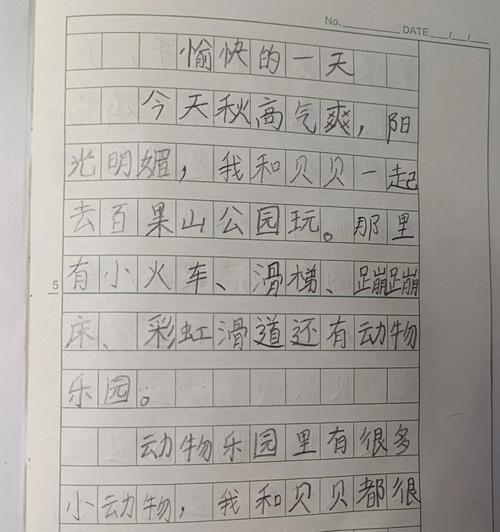 No.
DATE / /
愉快的一天
今天秋高气爽，阳
光明媚，我和贝贝一起
去百果山公园玩。那里
5
有小火车、滑梯、蹦蹦
床、彩虹滑道还有动物
乐园。
动物乐园里有很多
小动物，我和贝贝都很